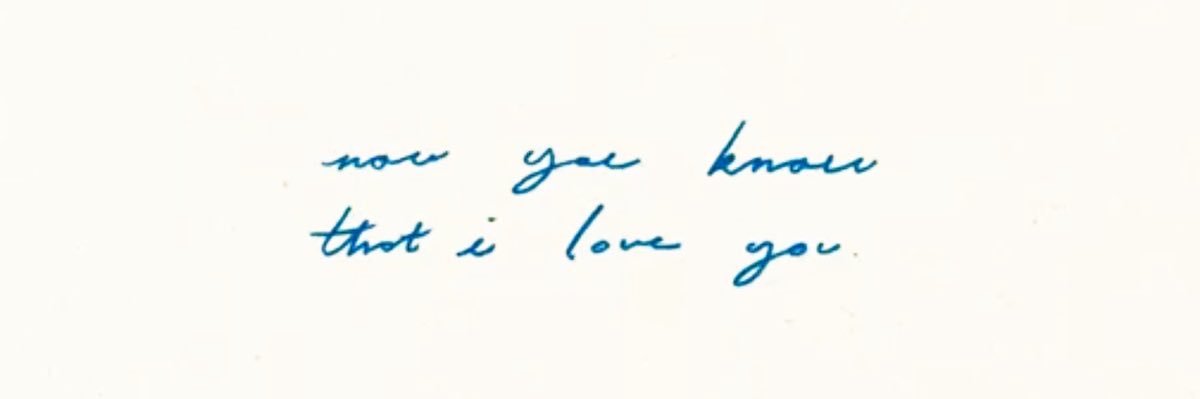 now you know
that i love you.